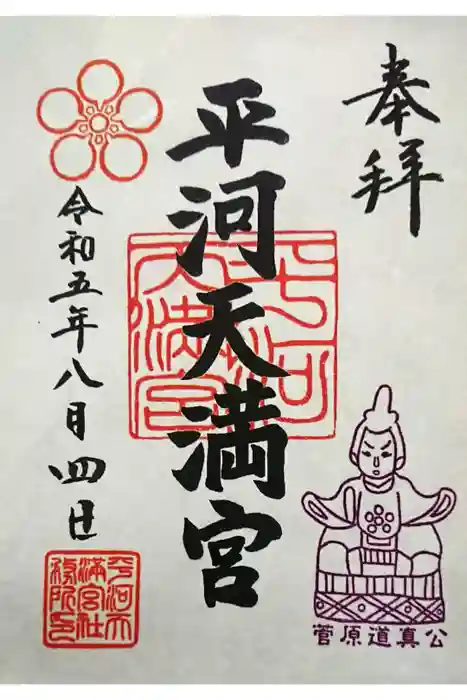 奉拝
平河天満宮
平河
天満宮
令和五年八月四日
平河天
満宮社
務所印
菅原道真公